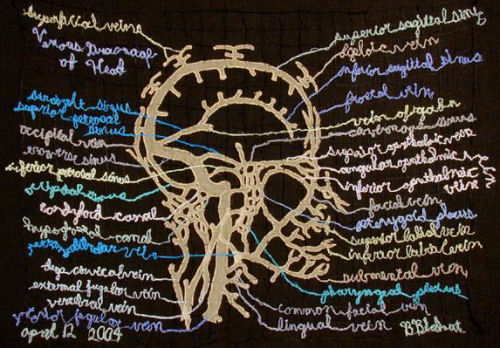 superficial veins
Venous Drainage
of Head
straight sinus
superior petrosal
sinus
occipital vein
transverse sinus
inferior petrosal sinus
occipital sinus
condyloid canal
hypoglossal canal
vein
deep cervical vein
external jugular vein
vertebral vein
jugular vein
april 12 2004
superior sagittal sinus
diploic vein
inferior sagittal sinus
frontal vein
vein of galen
cavernous sinus
superior ophthalmic vein
angular
inferior ophthalmic
vein
facial vein
pterygoid plexus
superior labial vein
inferior labial vein
submental vein
pharyngeal plexus
common facial vein
lingual vein